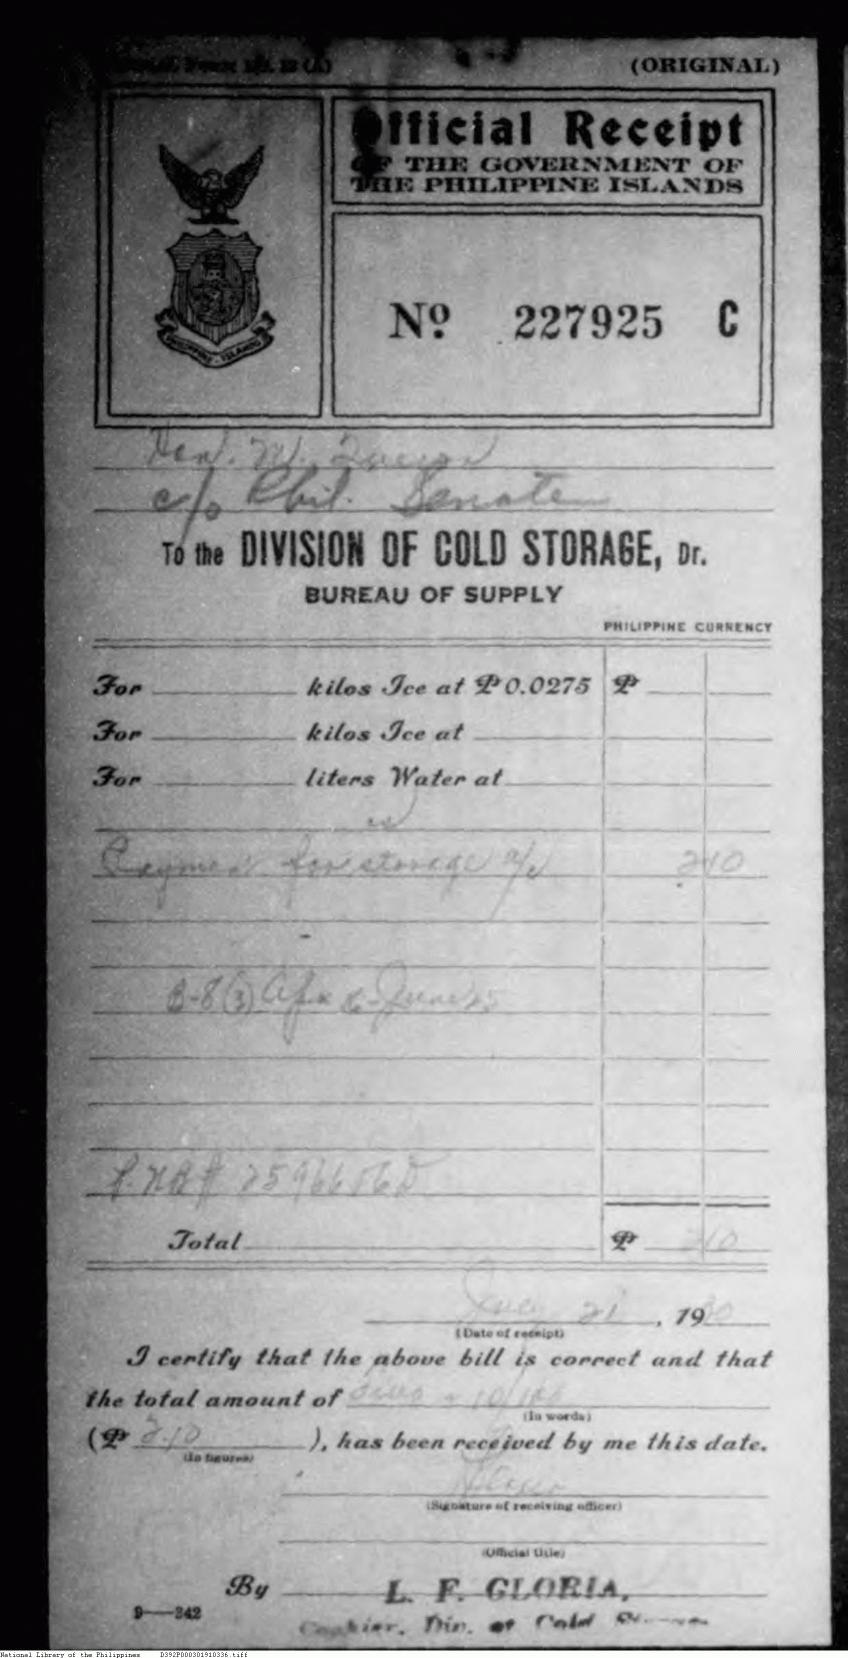 (ORIGINAL)
Official Receipt
OF THE GOVERNMENT OF
THE PHILIPPINE ISLANDS
Nº 227925 C
Hon. M. Quezon
c/o Phil. Senate
To the DIVISION OF COLD STORAGE, Dr.
BUREAU OF SUPPLY
PHILIPPINE CURRENCY
For kilos Ice at ₱0.0275 ₱
For kilos Ice at
For liters Water at
Payment for storage a/c 2 10
B-8(3)
P.N.B.#
Total ₱ 2 10
21, 1930
(Date of receipt)
I certify that the above bill is correct and that
the total amount of two + 10/100
(In words)
(₱ 2.10 ), has been received by me this date.
(In figures)
(Signature of receiving officer)
(Official title)
By L. F. GLORIA,
9—342
Cashier, Div. of Cold Storage
National Library of the Philippines D392P000301910336.tiff